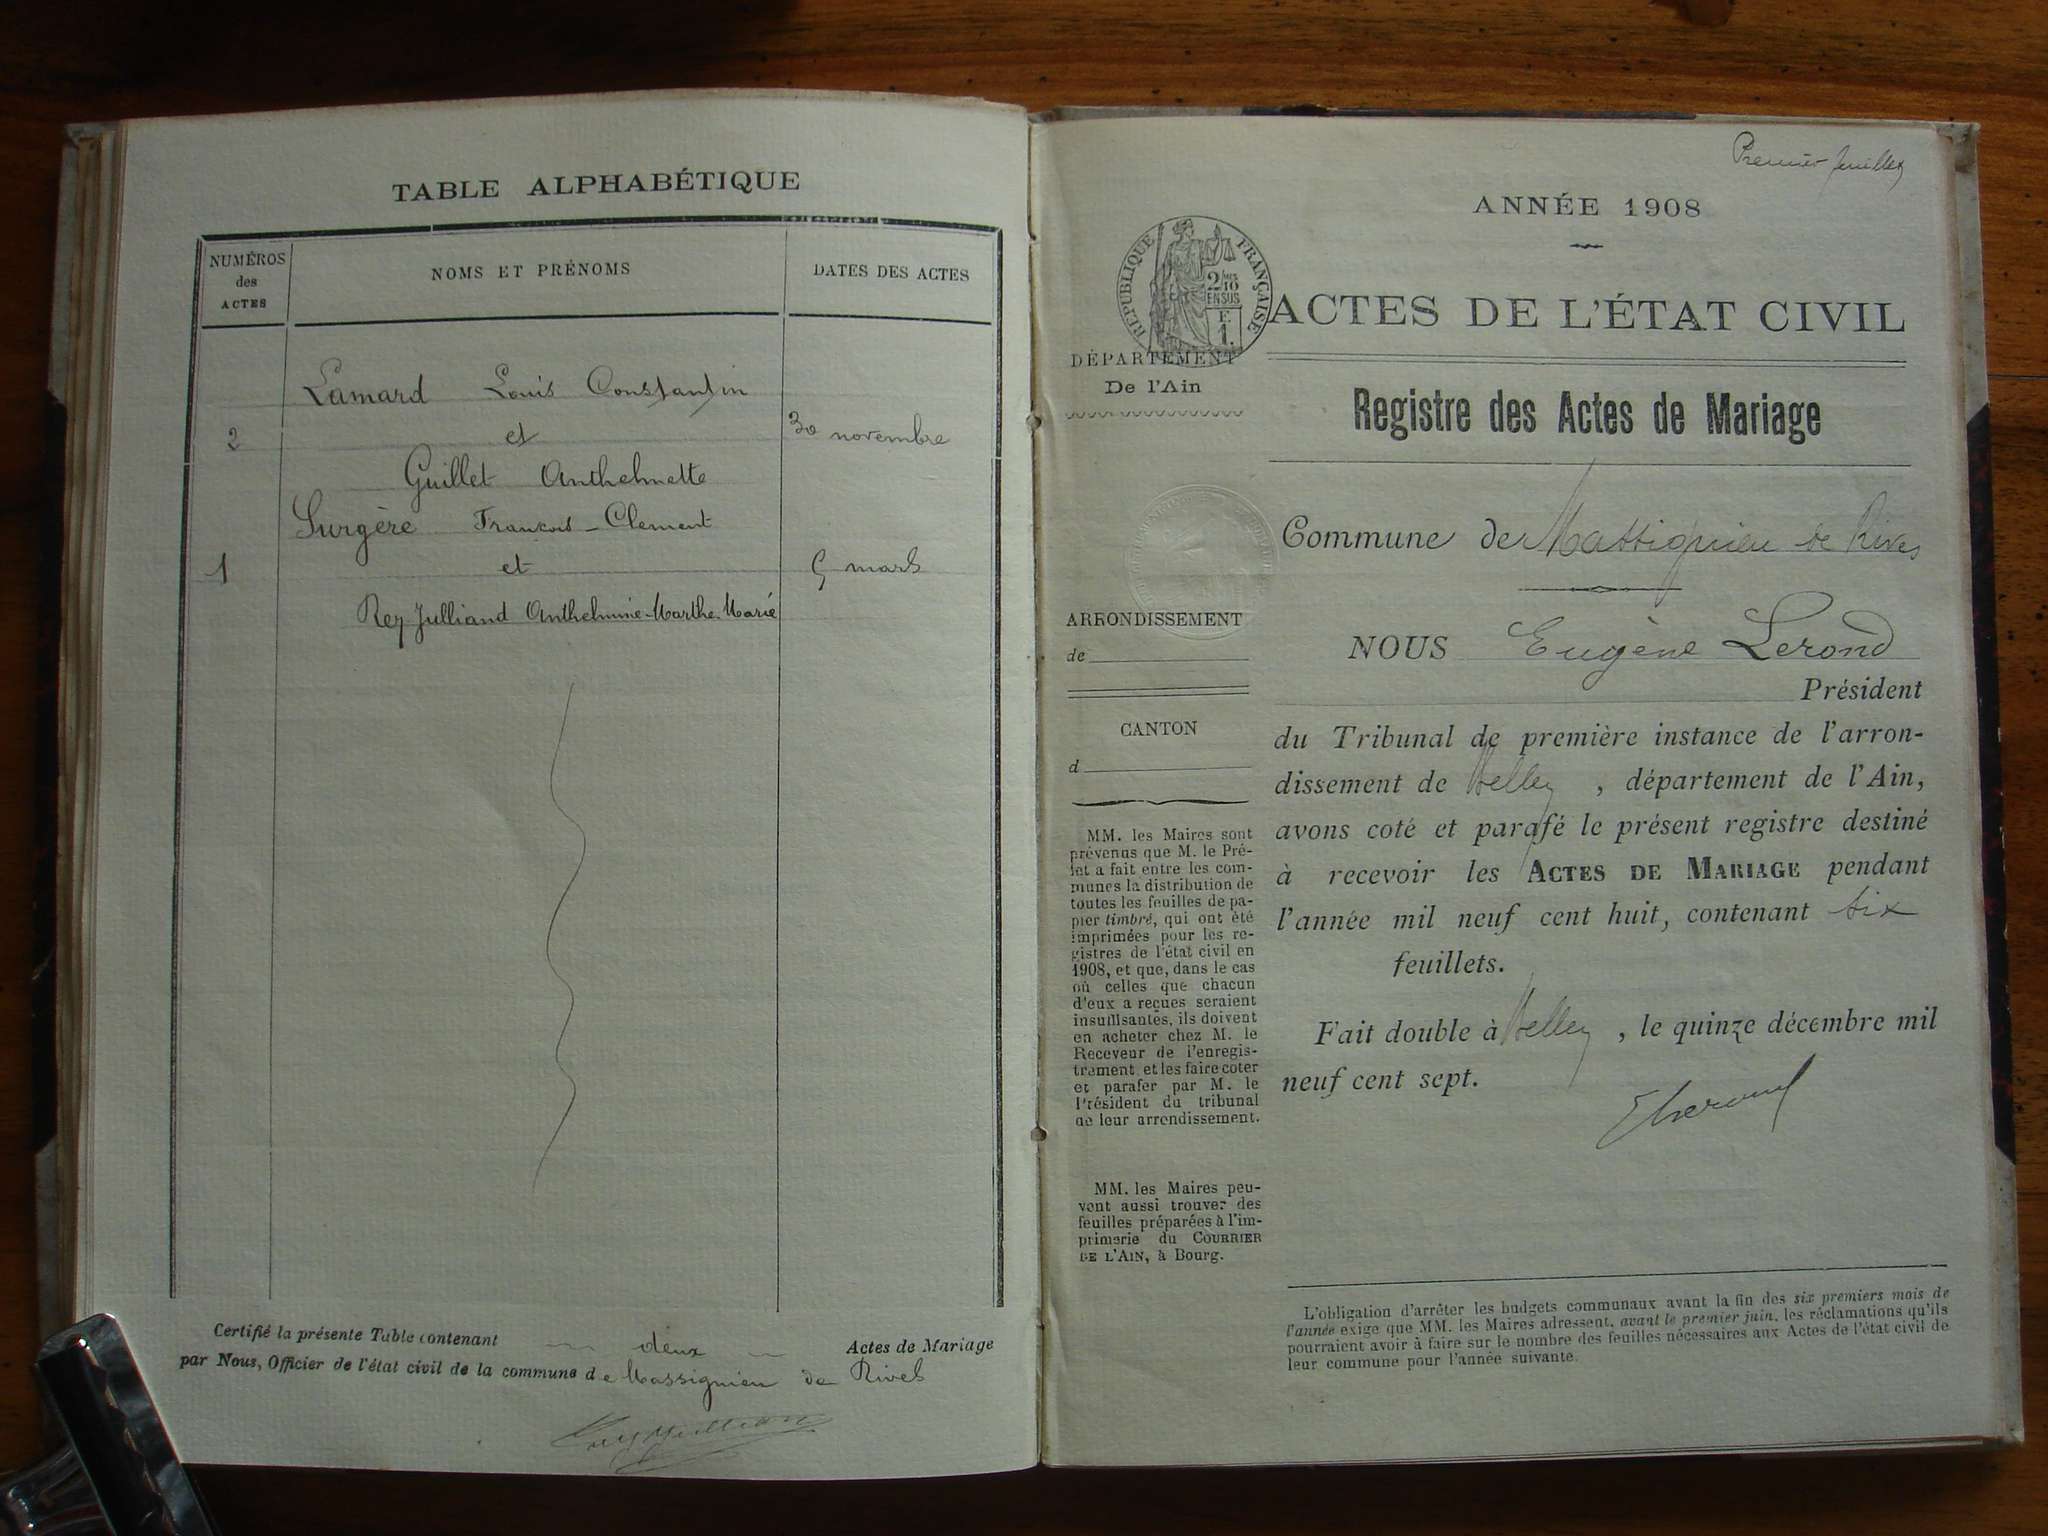 TABLE ALPHABÉTIQUE
NUMÉROS
des
ACTES
NOMS ET PRÉNOMS
DATES DES ACTES
Lamard Louis Constantin
2 et 30 novembre
Guillet Anthelmette
Surgère François-Clement
1 et 5 mars
Rey Julliand Anthelmine-Marthe-Marie
Certifié la présente Table contenant deux Actes de Mariage
par Nous, Officier de l'état civil de la commune de Massignieu de Rives
Premier feuillet
ANNÉE 1908
RÉPUBLIQUE FRANÇAISE
2/10
EN SUS
E
1.
ACTES DE L'ÉTAT CIVIL
DÉPARTEMENT
De l'Ain
Registre des Actes de Mariage
Commune de Massignieu de Rives
ARRONDISSEMENT
de
CANTON
d
MM. les Maires sont
prévenus que M. le Pré-
fet a fait entre les com-
munes la distribution de
toutes les feuilles de pa-
pier timbré, qui ont été
imprimées pour les re-
gistres de l'état civil en
1908, et que, dans le cas
où celles que chacun
d'eux a reçues seraient
insuffisantes, ils doivent
en acheter chez M. le
Receveur de l'enregis-
trement et les faire coter
et parafer par M. le
Président du tribunal
de leur arrondissement.
MM. les Maires peu-
vent aussi trouver des
feuilles préparées à l'im-
primerie du COURRIER
DE L'AIN, à Bourg.
NOUS Eugène Lerond
Président
du Tribunal de première instance de l'arron-
dissement de Belley, département de l'Ain,
avons coté et parafé le présent registre destiné
à recevoir les ACTES DE MARIAGE pendant
l'année mil neuf cent huit, contenant six
feuillets.
Fait double à Belley, le quinze décembre mil
neuf cent sept.
L'obligation d'arrêter les budgets communaux avant la fin des six premiers mois de
l'année exige que MM. les Maires adressent, avant le premier juin, les réclamations qu'ils
pourraient avoir à faire sur le nombre des feuilles nécessaires aux Actes de l'état civil de
leur commune pour l'année suivante.